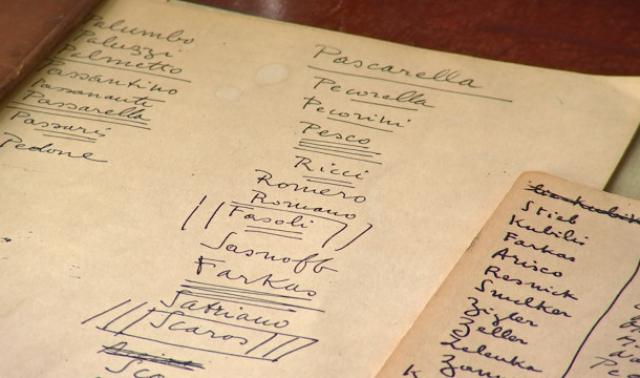 Palumbo
Paluzzi
Palmetto
Passantino
Passanante
Passarella
Passaré
Pedone
Pascarella
Pecorella
Pecorini
Pesco
Ricci
Romero
Romano
Fasoli
Sasnoff
Farkas
Satriano
Scaros
Sco
Stieb
Kubilii
Farkas
Arisco
Resnick
Smelker
Zigler
Zeller
Zelenka
Zam
K